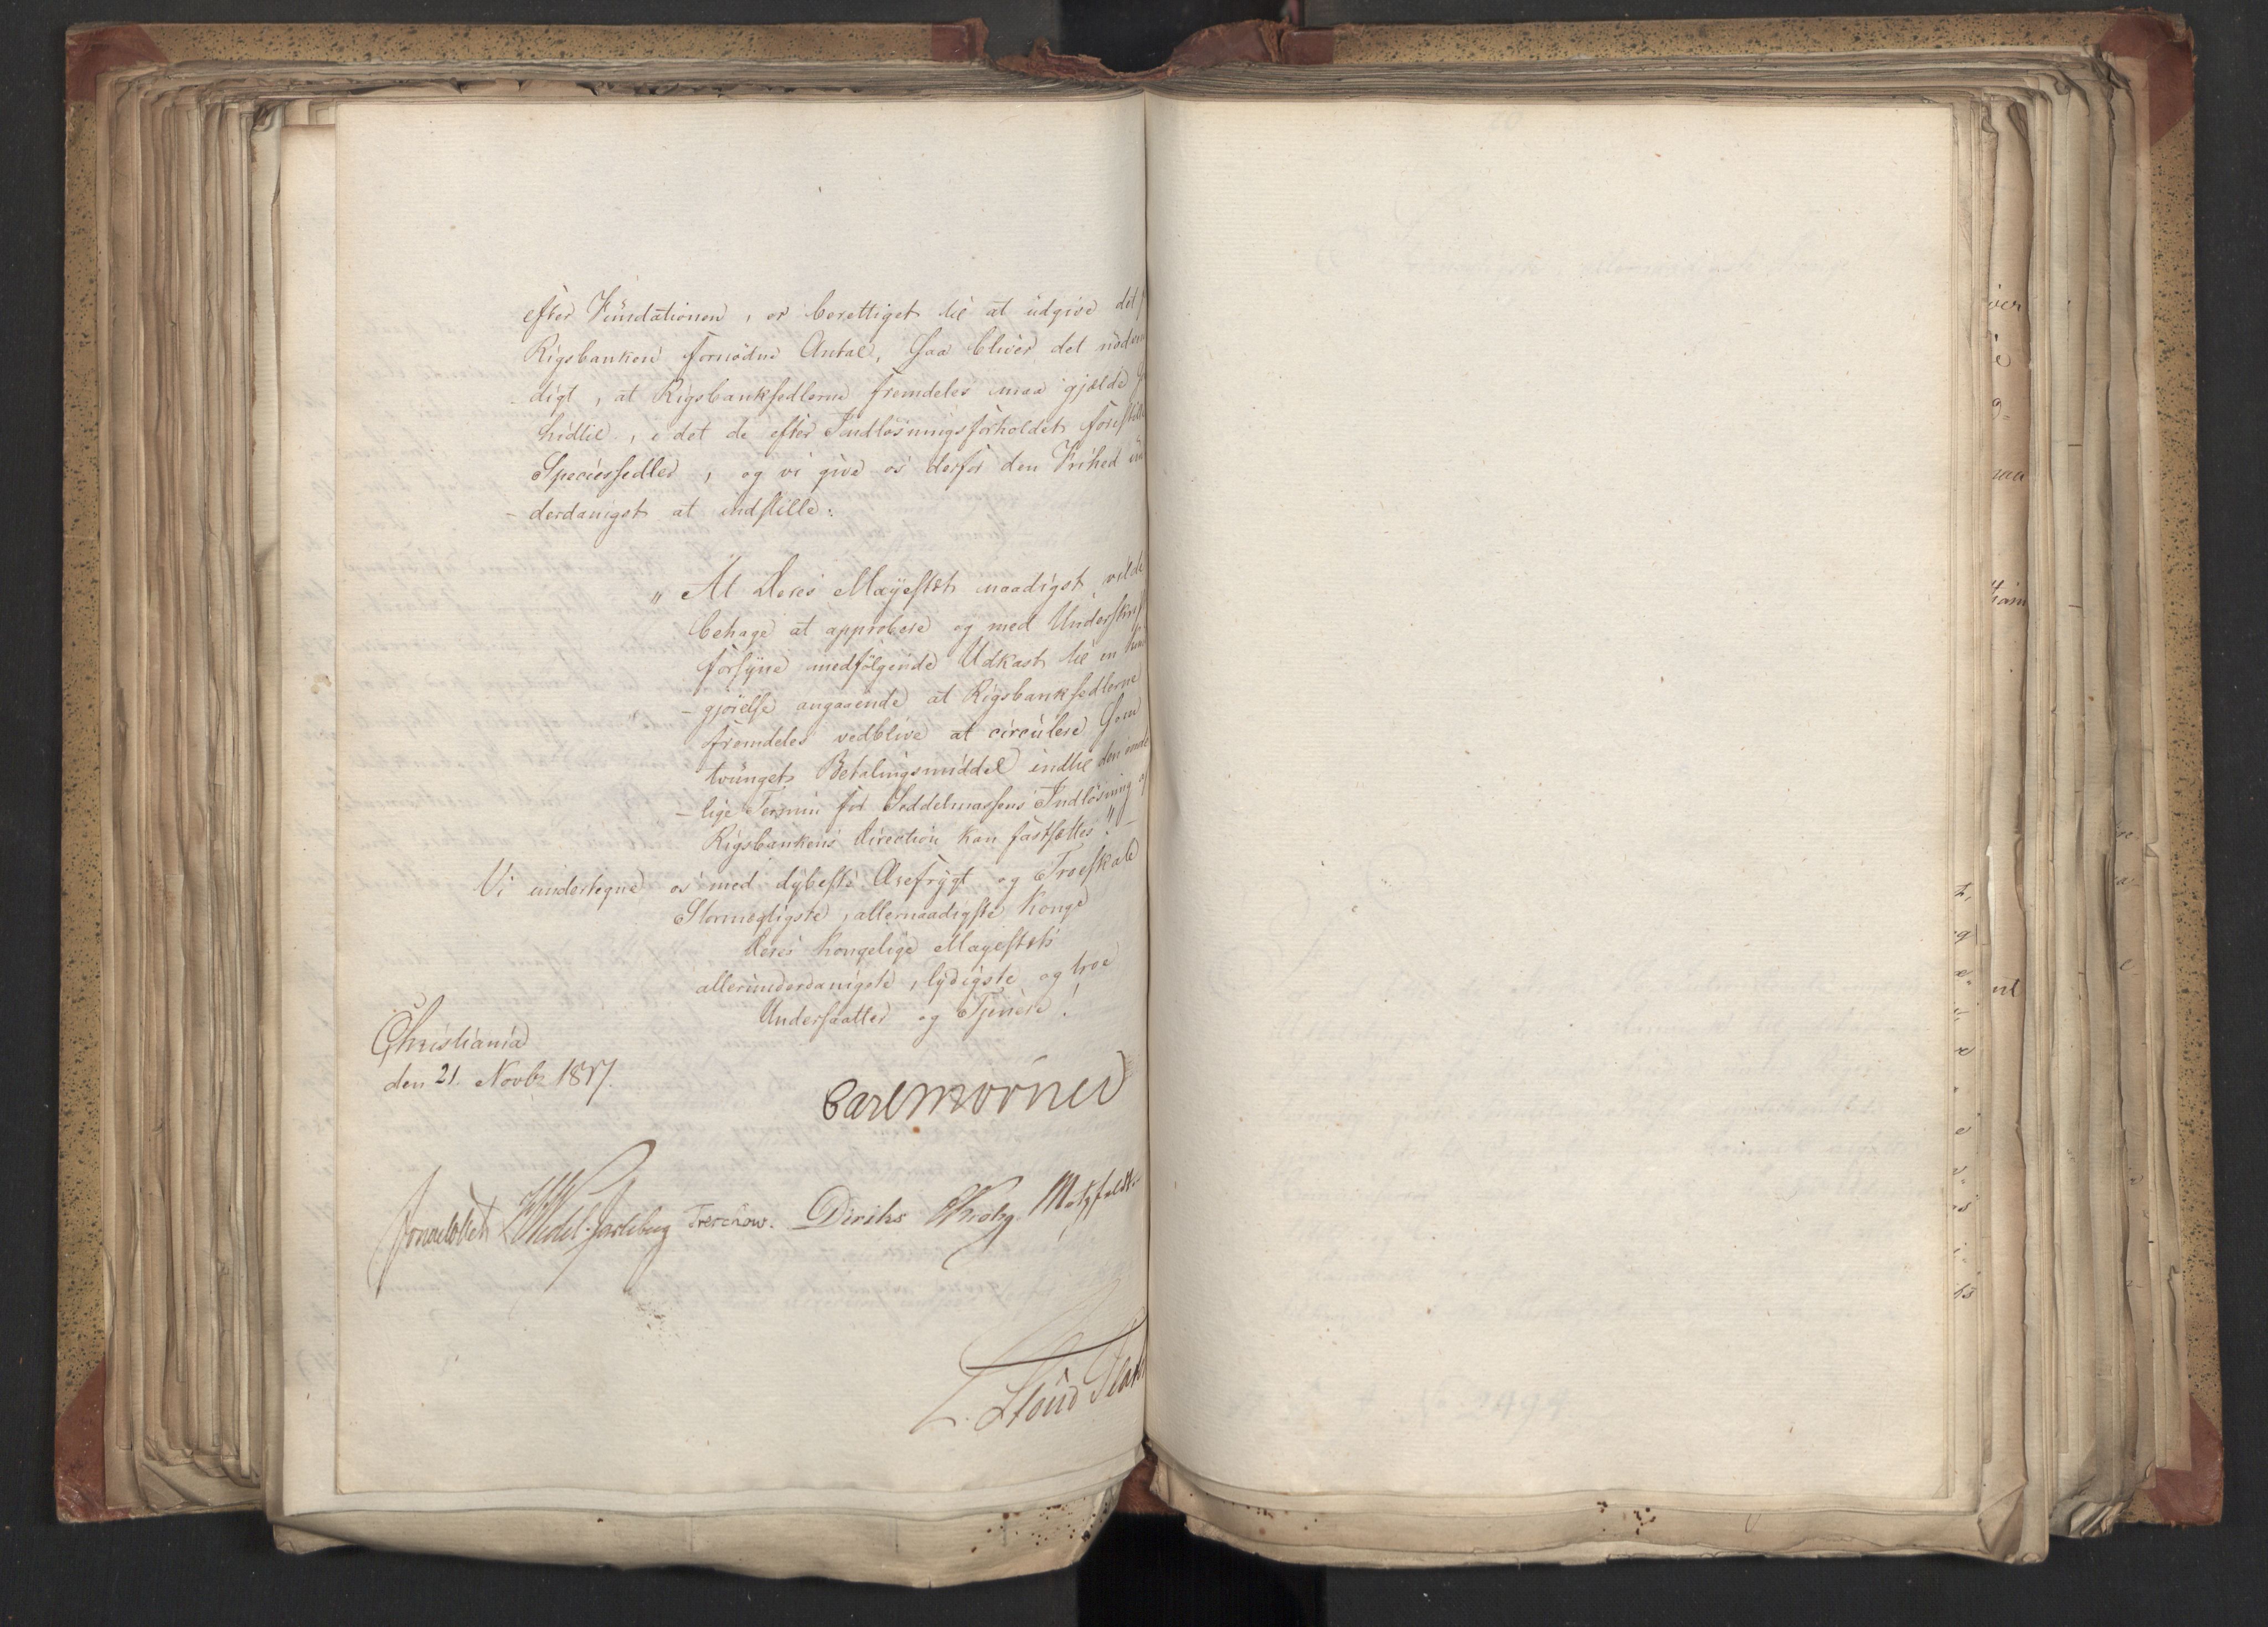 efter Fundationen, er berettiget til at udgive det
Rigsbanken fornödne Antal, saa bliver det nödven
-digt, at Rigsbanksedlerne fremdeles maa gjælde
hidtil, i det de efter Indlösningsforholdet forestille
Speciessedler, og vi give os derfor den Frihed un
-derdanigst at indstille:
„At Deres Mayestæt naadigst vilde
behage at approbere og med Underskrift
forsyne medfölgende Udkast til en Kund
-gjörelse angaaende at Rigsbanksedlerne
fremdeles vedblive at circulere som
tvunget Betalingsmiddel indtil den ende
-lige Termin for Seddelmassens Indlösning af
Rigsbankens Direction kan fastsættes". -
Vi undertegne os med dybeste Ærefrygt og Troeskab
Stormægtigste, allernaadigste Konge
Deres Kongelige Mayestæts
allerunderdanigste, lydigste og troe
Undersaatter og Tjenere!
Christiania
den 21 Novbr 1817.
Carl Mörner
Sommerhielm HWedel-Jarlsberg Treschow. Diriks CKrohg Motzfeldt
L. Stoud Plato